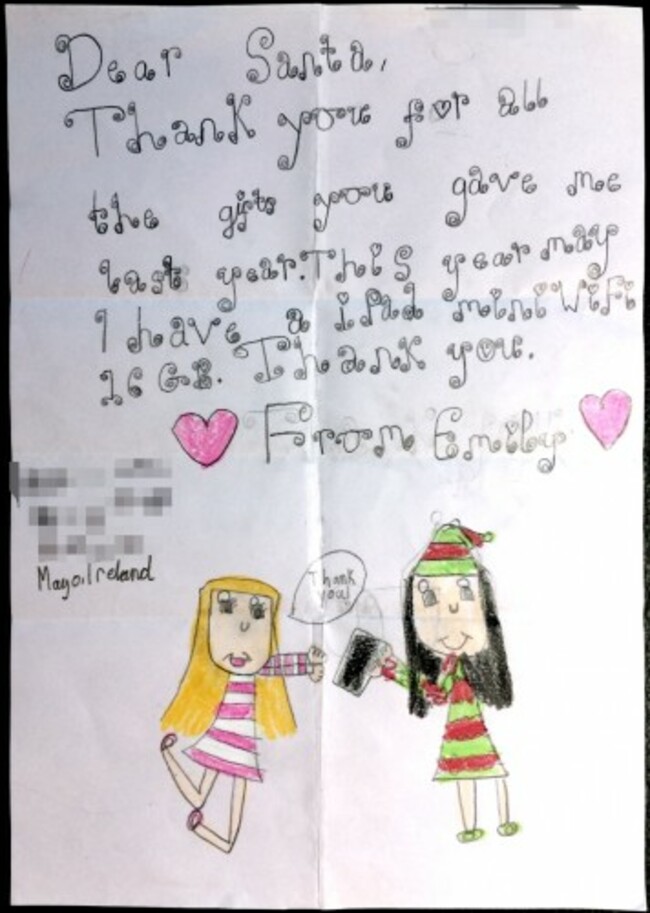 Dear Santa,
Thank you for all
the gifts you gave me
last year. This year may
I have a iPad mini WiFi
16 GB. Thank you.
From Emily
Mayo, Ireland
Thank
you!